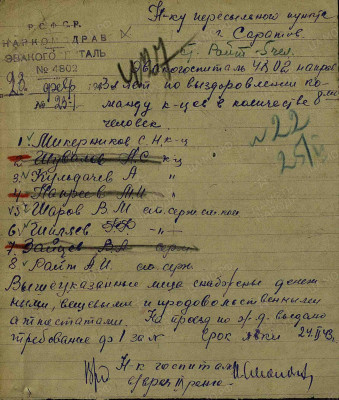 Р.С.Ф.С.Р.
НАРКОМЗДРАВ
ЭВАКОГОСПИТАЛЬ
№ 4802
23 февр 1943
№ 231
Н-ку пересыльного пункта
г. Саратов
427
Эвакогоспиталь 4802 направ-
ляет по выздоровлении ко-
манду к-цев в количестве 8-ми
человек.
№22
1. Микерников С.Н. к-ц
2. Шувалов А.С. к-ц
3. Кулдачев А. "
4. Напреев М.И. "
5. Шаров В.М. ст. серж.
6. Шиляев "
7. Зайцев В.А.
8. Райт А.И. ст. серж.
Вышеуказанные лица снабжены денеж-
ными, вещевыми и продовольственными
аттестатами. На проезд по ж.д. выдано
требование ф1 за № Срок явки 24.II.43.
Н-к госпиталя